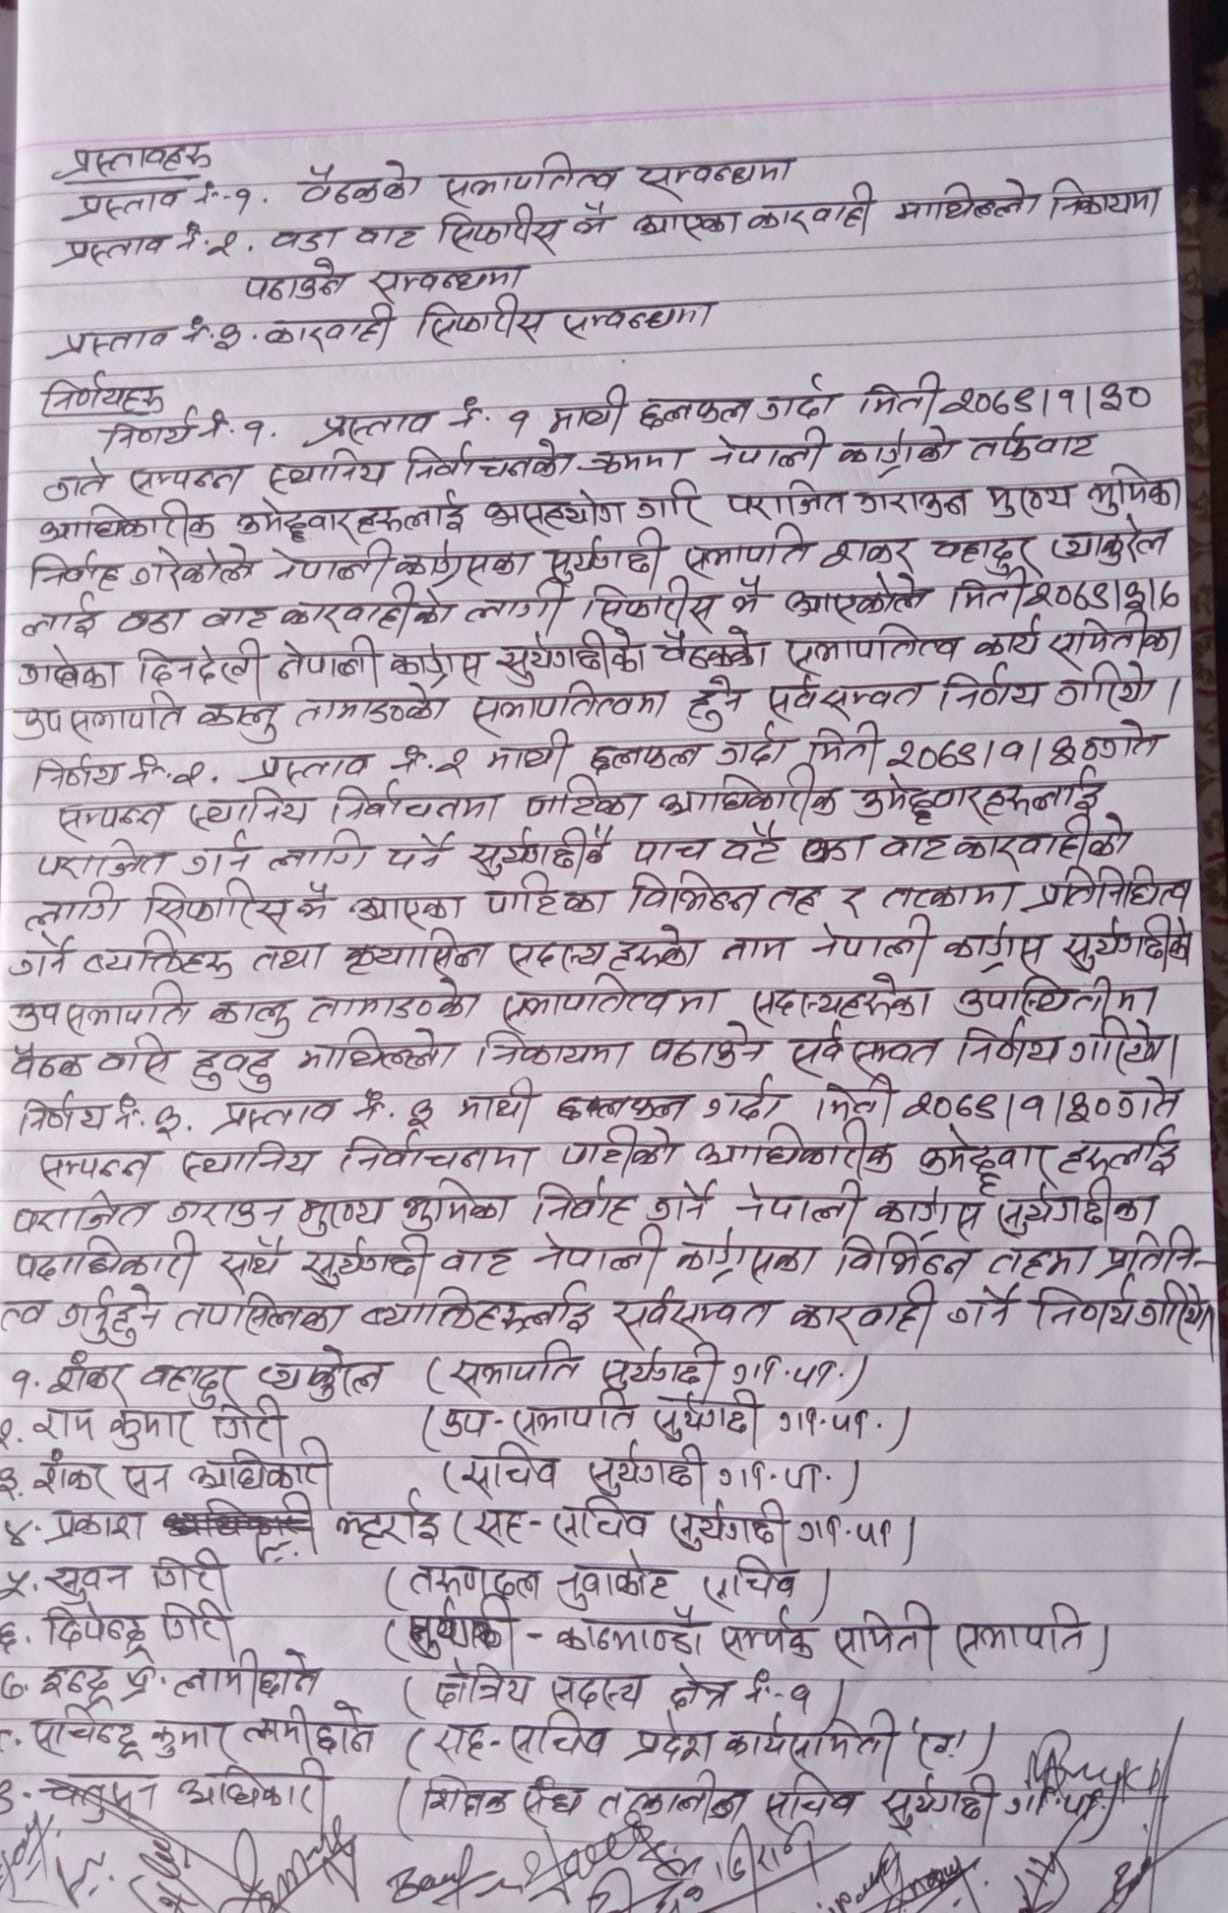 प्रस्तावहरू
प्रस्ताव नं.-१. वैठकको सभापतित्व सम्वन्धमा
प्रस्ताव नं.२. वडा वाट सिफारीस भै आएका कारवाही माथिल्लो निकायमा
पठाउने सम्वन्धमा
प्रस्ताव नं.३. कारवाही सिफारीस सम्वन्धमा
निर्णयहरू
निर्णय नं.१. प्रस्ताव नं. १ माथी छलफल गर्दा मिती २०७९।१।३०
गते सम्पन्न स्थानिय निर्वाचनको क्रममा नेपाली काग्रेको तर्फवाट
आधिकारीक उमेद्वारहरूलाई असहयोग गरि पराजित गराउन मुख्य भुमिका
निर्वाह गरेकोले नेपाली काग्रेसका सुर्यगढी सभापति शंकर वहादुर थाकुरेल
लाई वडा वाट कारवाहीको लागी सिफारीस भै आएकोले मिती २०७९।३।७
गतेका दिनदेखी नेपाली काग्रेस सुर्यगढीको वैठकको सभापतित्व कार्य समितीका
उपसभापति कालु तामाङको सभापतित्वमा हुने सर्वसम्वत निर्णय गरियो।
निर्णय नं.२. प्रस्ताव नं.२ माथी छलफल गर्दा मिती २०७९।१।३०गते
सम्पन्न स्थानिय निर्वाचनमा पार्टिका आधिकारीक उमेद्वारहरूलाई
पराजित गर्न लागि पर्ने सुर्यगढीकै पाच वटै वडा वाट कारवाहीको
लागि सिफारिस भै आएका पार्टिका विभिन्न तह र तप्कामा प्रतिनिधित्व
गर्ने व्यक्तिहरू तथा कृयासिल सदस्यहरूको नाम नेपाली काग्रेस सुर्यगढीको
उपसभापति कालु तामाङको सभापतित्वमा सदस्यहरूका उपस्थितीमा
वैठक वसि हुवहु माथिल्लो निकायमा पठाउने सर्वसम्वत निर्णय गरियो।
निर्णय नं.३. प्रस्ताव नं. ३ माथी छलफल गर्दा मिती २०७९।१।३०गते
सम्पन्न स्थानिय निर्वाचनमा पार्टीको आधिकारीक उमेद्वार हरूलाई
पराजित गराउन मुख्य भुमिका निर्वाह गर्ने नेपाली काग्रेस सुर्यगढीका
पदाधिकारी साथै सुर्यगढी वाट नेपाली काग्रेसका विभिन्न तहमा प्रतिनि-
त्व गर्नुहुने तपसिलका व्यक्तिहरूलाई सर्वसम्वत कारवाही गर्ने निर्णय गरियो
१. शंकर वहादुर थाकुरेल (सभापति सुर्यगढी गा.पा.)
२. राम कुमार गिरी (उप-सभापति सुर्यगढी गा.पा.)
३. शंकर सन अधिकारी (सचिव सुर्यगढी गा.पा.)
४. प्रकाश भट्टराई (सह-सचिव सुर्यगढी गा.पा)
५. सुवन गिरी (तरुणदल नुवाकोट सचिव)
६. दिपेन्द्र गिरी (सुर्यगढी - काठमाण्डौ सम्पर्क समिती सभापति)
७. इन्द्र प्र. लामीछाने (क्षेत्रिय सदस्य क्षेत्र नं.-१)
८. सचिन्द्र कुमार लामीछाने (सह-सचिव प्रदेश कार्यसमिती)
९. अधिकारी (शिक्षक संघ तत्कालीन सचिव सुर्यगढी गा.पा.)